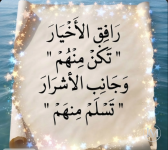 رَافِقِ الأَخْيَارَ
" تَكُنْ مِنْهُمْ "
وَجَانِبِ الأَشرَارَ
" تَسْلَمْ مِنهَمْ "